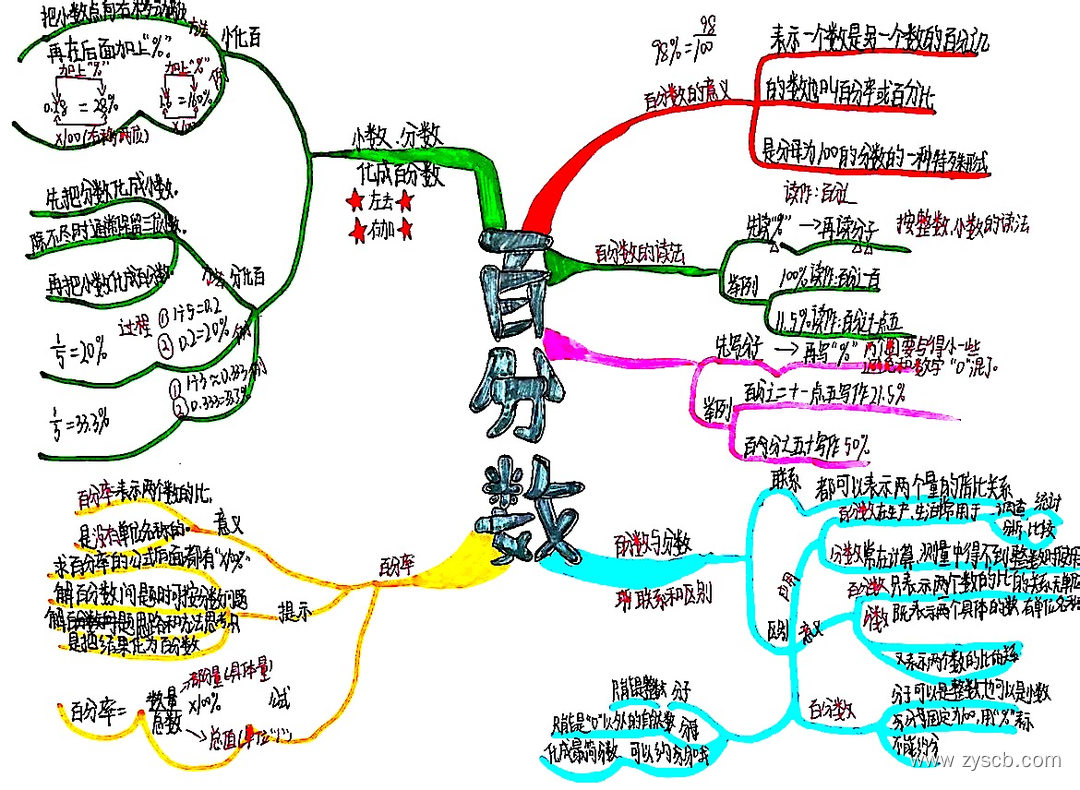 百分数
98%=98/100
百分数的意义
表示一个数是另一个数的百分之几
的数也叫百分率或百分比
是分母为100的分数的一种特殊形式
百分数的读法
读作:百分之
先读"%"→再读分子 按整数、小数的读法
举例
100%读作:百分之一百
11.5%读作:百分之十一点五
先写分子→再写"%"
要写得小一些
避免和数字"0"混了。
举例
百分之二十一点五写作21.5%
百分之五十写作50%
百分数与分数
联系和区别
联系
都可以表示两个量的倍比关系
百分数在生产、生活常用于 调查 统计
分析 比较
分数常在计算、测量中得不到整数时使用
区别
意义
百分数只表示两个数的比的关系
分数既表示两个具体的数
又表示两个数的比的关系
百分数
分子可以是整数也可以是小数
分母固定为100,用"%"表示
不能约分
只能是整数 分子
只能是"0"以外的自然数 分母
化成最简分数 可以约分
小数、分数
化成百分数
左去
右加
小化百
方法
把小数点向右移动两位
再在后面加上"%"。
加上"%"
0.28=28%
×100(右移两位)
加上"%"
1.8=180%
×100
分化百
方法
先把分数化成小数。
除不尽时通常保留三位小数。
再把小数化成百分数。
例
过程
①1÷5=0.2
②0.2=20%
1/5=20%
例
①1÷3≈0.333
②0.333=33.3%
=33.3%
百分率
意义
百分率表示两个数的比。
是没有单位名称的。
提示
求百分率的公式后面都有"×100%"
解百分数问题时可按分数问题
是把结果化为百分数
公式
百分率=数量/总数×100%
部份量(具体量)
总值(单位"1")
www.zyscb.com